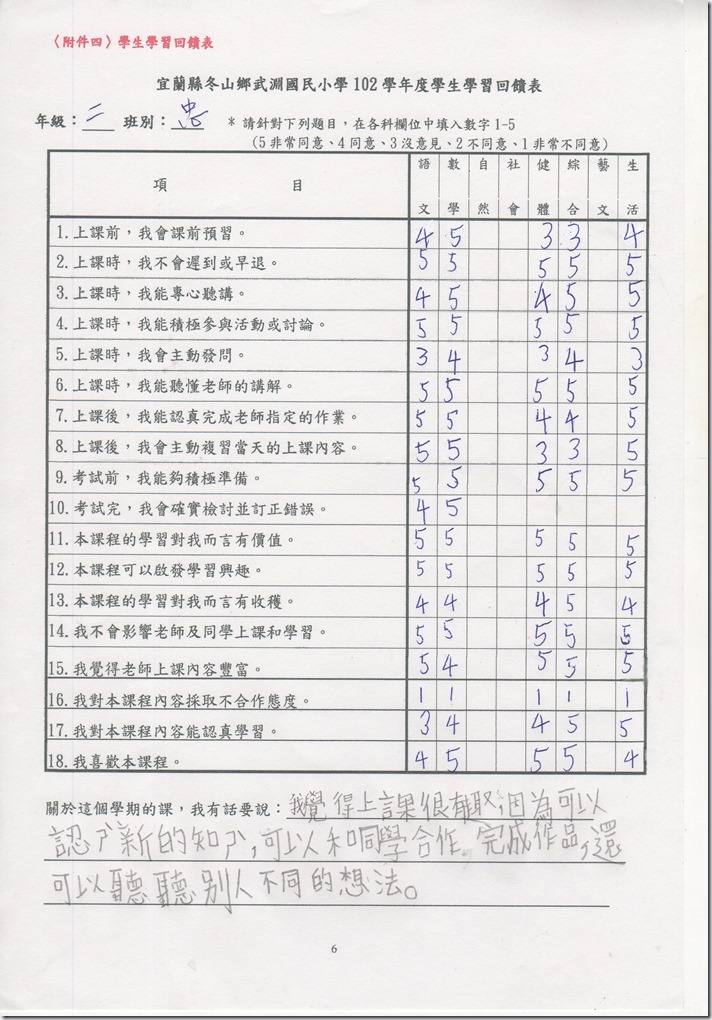 〈附件四〉學生學習回饋表
宜蘭縣冬山鄉武淵國民小學102學年度學生學習回饋表
年級：二 班別：忠 * 請針對下列題目，在各科欄位中填入數字1-5
(5非常同意、4同意、3沒意見、2不同意、1非常不同意)
項 目 語文 數學 自然 社會 健體 綜合 藝文 生活
1.上課前，我會課前預習。 4 5 3 3 4
2.上課時，我不會遲到或早退。 5 5 5 5 5
3.上課時，我能專心聽講。 4 5 4 5 5
4.上課時，我能積極參與活動或討論。 5 5 5 5 5
5.上課時，我會主動發問。 3 4 3 4 3
6.上課時，我能聽懂老師的講解。 5 5 5 5 5
7.上課後，我能認真完成老師指定的作業。 5 5 4 4 5
8.上課後，我會主動複習當天的上課內容。 5 5 3 3 5
9.考試前，我能夠積極準備。 5 5 5 5 5
10.考試完，我會確實檢討並訂正錯誤。 4 5
11.本課程的學習對我而言有價值。 5 5 5 5 5
12.本課程可以啟發學習興趣。 5 5 5 5 5
13.本課程的學習對我而言有收穫。 4 4 4 5 4
14.我不會影響老師及同學上課和學習。 5 5 5 5 5
15.我覺得老師上課內容豐富。 5 4 5 5 5
16.我對本課程內容採取不合作態度。 1 1 1 1 1
17.我對本課程內容能認真學習。 3 4 4 5 5
18.我喜歡本課程。 4 5 5 5 4
關於這個學期的課，我有話要說：我覺得上課很有趣，因為可以
認ㄕˋ新的知ㄕˋ，可以和同學合作完成作品，還
可以聽聽別人不同的想法。
6